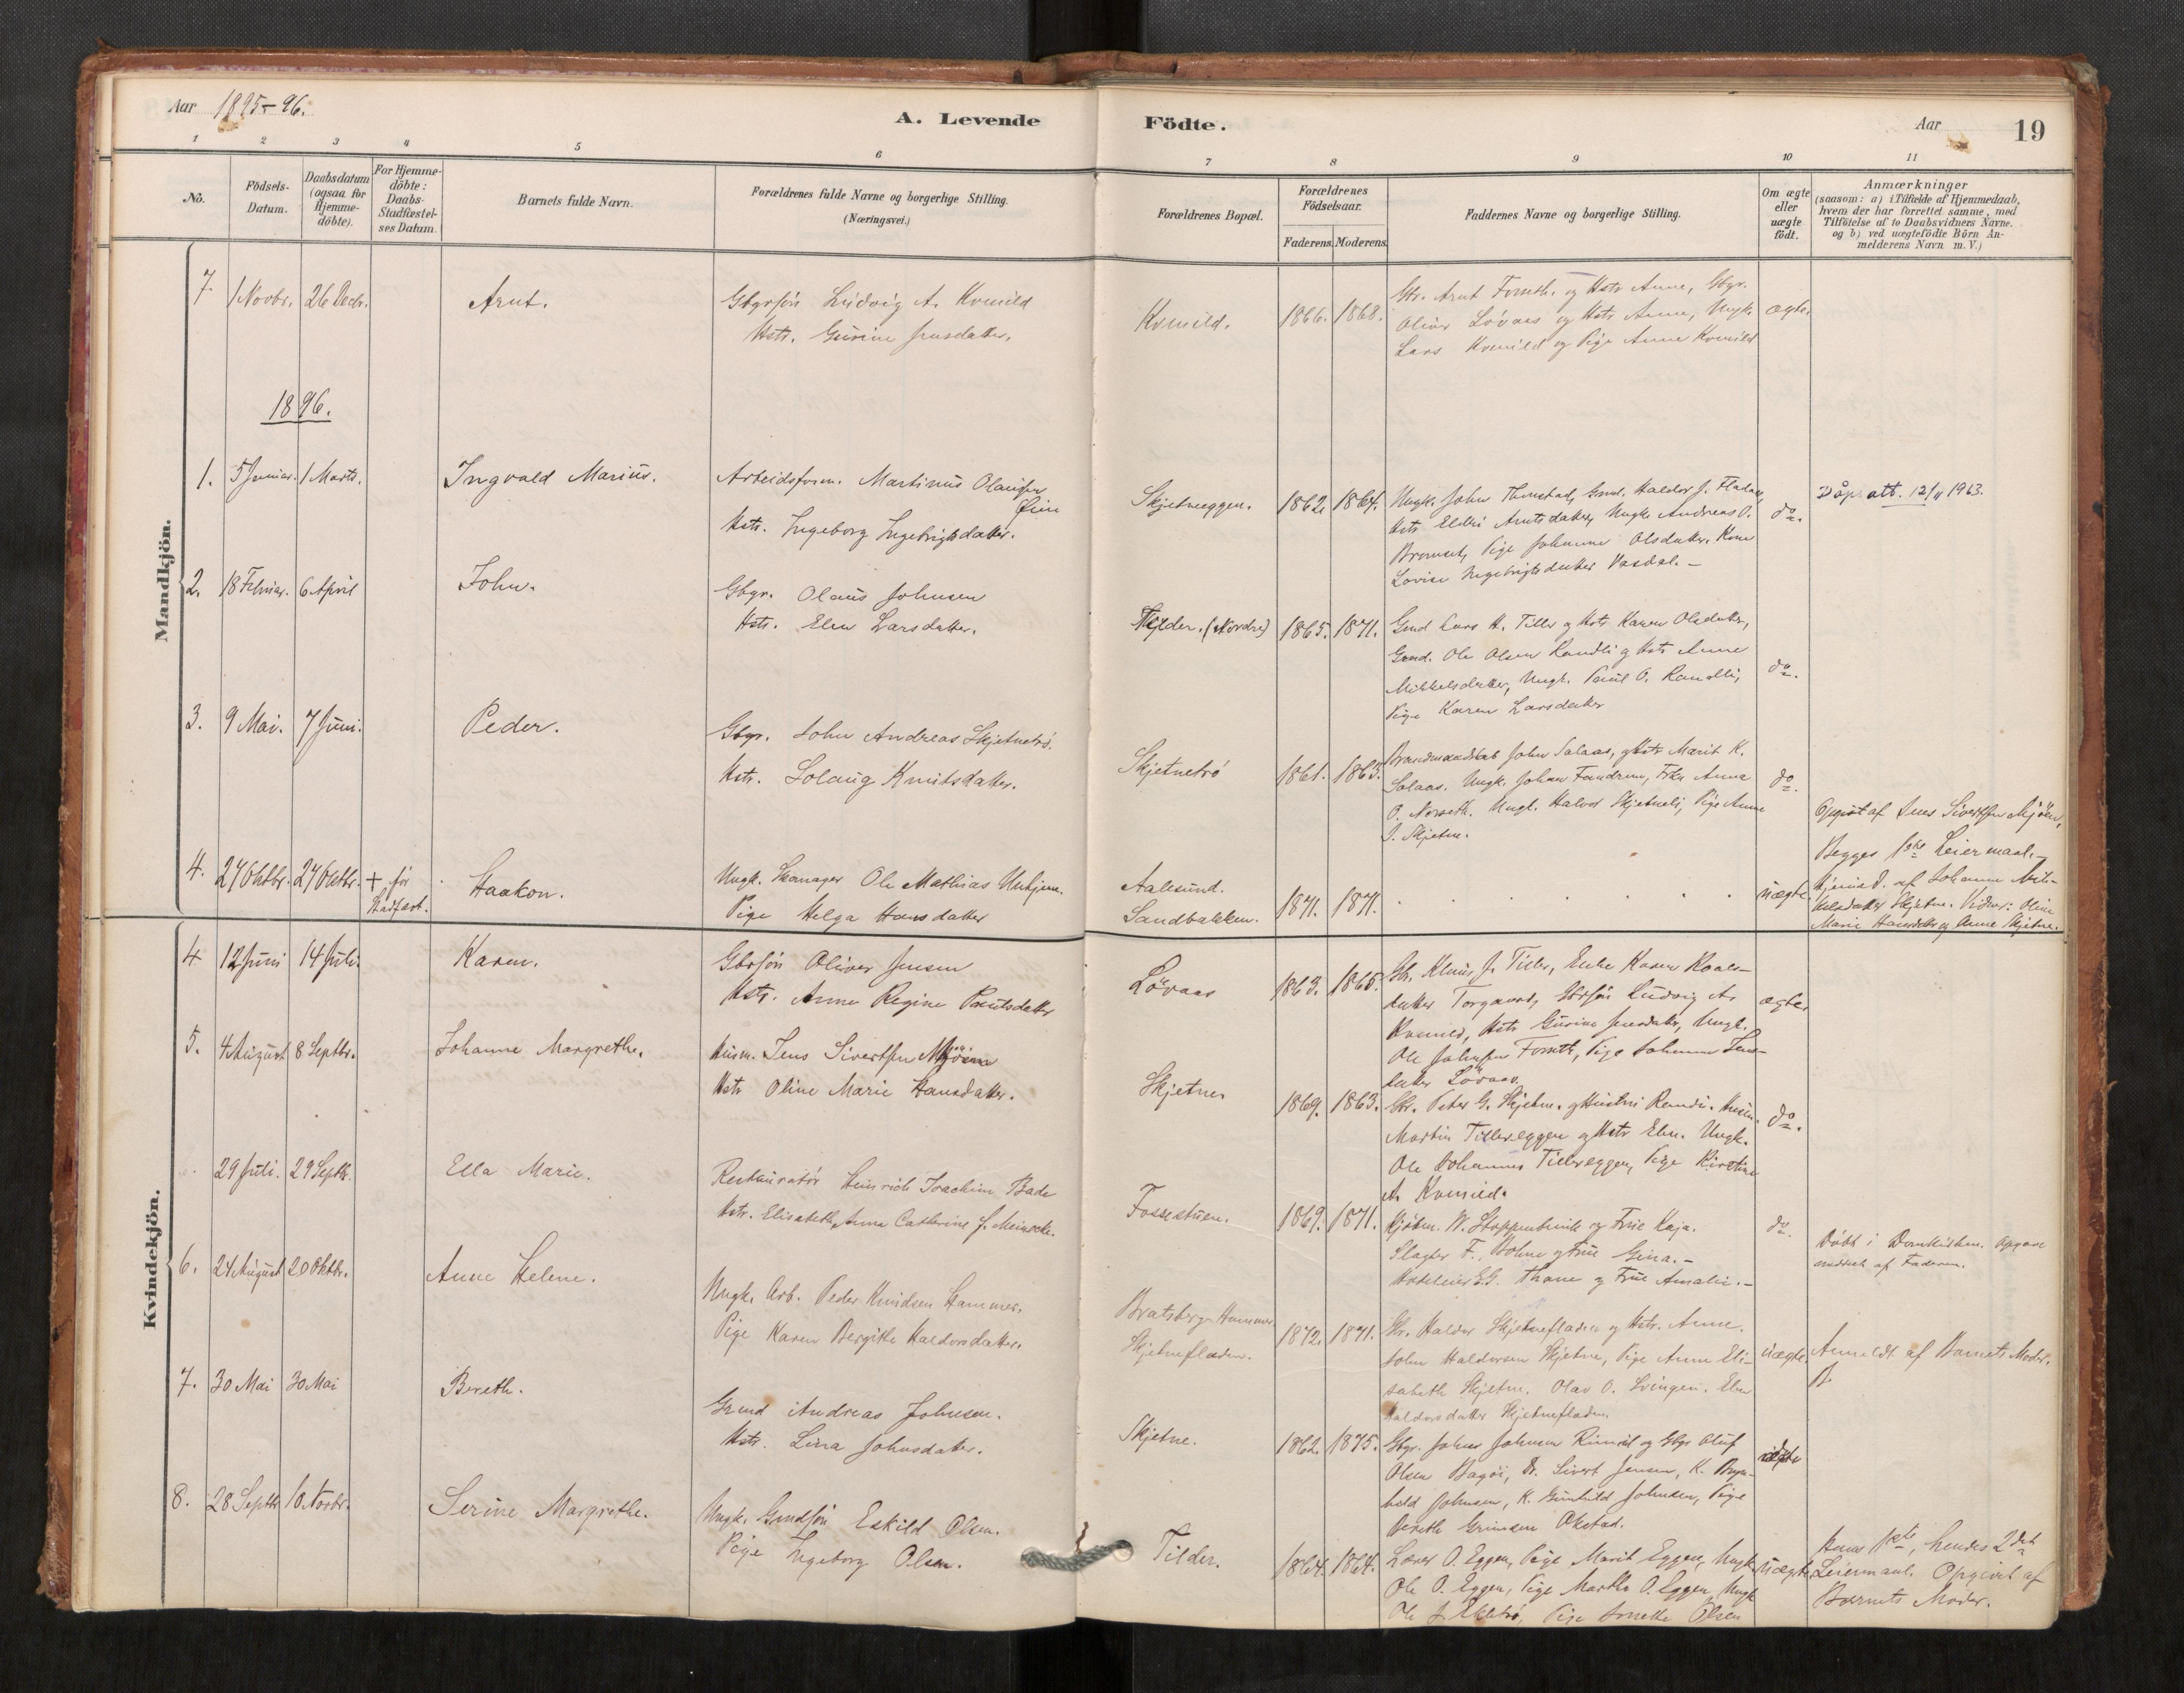 Aar 1895-96.
A. Levende Födte.
Aar
19
1 2 3 4 5 6 7 8 9 10 11
No.
Födsels-
Datum.
Daabsdatum
(ogsaa for
Hjemme-
döbte).
For Hjemme-
döbte:
Daabs-
Stadfæstel-
ses Datum.
Barnets fulde Navn.
Forældrenes fulde Navne og borgerlige Stilling.
(Næringsvei.)
Forældrenes Bopæl.
Forældrenes
Födselsaar.
Faderens. Moderens.
Faddernes Navne og borgerlige Stilling.
Om ægte
eller
uægte
födt.
Anmærkninger
(saasom: a) i Tilfælde af Hjemmedaab,
hvem der har forrettet samme, med
Tilföielse af to Daabsvidners Navne.
og b) ved uægtefödte Börn An-
melderens Navn m. V.)
Mandkjön.
7 1 Novbr. 26 Decbr. Arnt.
Gbgrsön Ludvig A. Kvenild
Hstr. Gurine Jensdatter.
Kvenild. 1866. 1868.
Gbr. Arnt Forseth. og Hstr Anne, Gbgr.
Oliver Lövaas og Hstr Anne, Ungk.
Lars Kvenild og Pige Anne Kvenild
ægte.
1896.
1. 5 Januar. 1 Marts. Ingvald Marius.
Arbeidsform. Martinus Olaussen
Øien
Hstr. Ingeborg Ingebrigtsdatter.
Skjetneeggen. 1862. 1864.
Ungk. John Thonstad, Grmd. Haldor J. Fladen,
Hstr Eldri Arntsdatter, Ungk Andreas O.
Bromset, Pige Johanne Olsdatter. Kone
Lovise Ingebrigtsdatter Vasdal. -
do.
Dåpsatt. 12/11 1963.
2. 18 Februar. 6 April John.
Gbgr. Olaus Johnsen
Hstr. Elen Larsdatter.
(Nordre) 1865. 1871.
Gmd Lars H. Tiller og Hstr Karen Olsdatter,
Grmd. Ole Olsen Randli og Hstr Anne
Mikkelsdatter, Ungk. Paul O. Randli,
Pige Karen Larsdatter
do.
3. 9 Mai. 7 Juni. Peder.
Gbgr. John Andreas Skjetnetrö.
Hstr. Solaug Knutsdatter.
Skjetnetrö 1861. 1863.
John Salaas, og Hstr Marit K.
Salaas. Ungk. Johan Fandrem, Frk. Anna
O. Norseth. Ungk. Halvor Skjetneli, Pige Anne
J. Skjetne.
do.
4. 27 Oktbr. 27 Oktbr. + för
Stadfæst.
Haakon.
Ungk. Ole Mathias
Pige Helga Hansdatter
Aalesund.
Sandbakken. 1871. 1871.
uægte.
Opgivet af Jens Sivertsen Mjöen,
Begges 1ste Leiermaal. -
Hjemmed. af Johanne Mik-
kelsdatter Skjetne. Vidner: Oline
Marie Hansdatter og Anne Skjetne.
Kvindekjön.
4 12 Juni 14 Juli. Karen.
Gbrsön Oliver Jensen
Hstr. Anne Regine Paulsdatter
Lövaas 1863. 1865.
Gbr. Klaus J. Tiller, Enke Karen Roals-
datter Torgaard, Gbrsön Ludvig A.
Kvenild, Hstr Gurine Jensdatter, Ungk.
Ole Johnsen Forseth, Pige Johanne Jens-
datter Lövaas.
ægte.
5. 4 August 8 Septbr. Johanne Margrethe.
Husm. Jens Sivertsen Mjöen
Hstr Oline Marie Hansdatter.
Skjetne. 1869. 1863.
Gbr. Peter G. Skjetne. og Hustru Randi. Husm.
Martin Tillereggen og Hstr Elen. Ungk.
Ole Johannes Tillereggen, Pige Kirstine
A. Kvenild.
do.
29 Juli. 29 Septbr. Ella Marie.
Restauratör Heinrich Joachim Bade
Hstr. Elisabeth Anna Catherine f. Meinecke.
Fossestuen. 1869. 1871.
Kjöbm. W. Stoppenbrink og Frue Kaja.
Slagter F. Bohne og Frue Gina. -
Hoteleier E.G. Thane og Frue Amalie. -
do.
Döbt i Domkirken. Opgave
meddelt af Faderen.
6. 24 August 20 Oktbr. Anne Helene.
Ungk. Arb. Peder Knudsen Hammer.
Pige Karen Bergitte Haldorsdatter.
Bratsberg-Hammer
Skjetnefladen. 1872. 1871.
Gbr. Haldor Skjetnefladen og Hstr. Anne.
John Haldorsen Skjetne, Pige Anne Eli-
sabeth Skjetne. Olav O. Svingen. Elen
Haldorsdatter Skjetnefladen.
uægte.
Anmeldt af Barnets Moder.
B.
7. 30 Mai 30 Mai Bereth.
Grmd Andreas Johnsen.
Hstr. Lina Johnsdatter.
Skjetne. 1862. 1875.
Gbgr. Johan Johnsen Rimul og Gbgr Oluf
Olsen Bagöi, Dr. Sivert Jensen, K. Bryn-
hild Johnsen, K. Gunhild Johnsen, Pige
Bereth Grimsen Okstad.
8. 28 Septbr 10. Novbr. Serine Margrethe.
Ungk. Grmdsön Eskild Olsen.
Pige Ingeborg Olsen.
Tilder. 1864. 1864.
Lærer O. Eggen, Pige Marit Eggen, Ungk.
Ole O. Eggen, Pige Martha O. Eggen, Ungk
Ole J. Pige Olsen
uægte.
Hans 1ste, hendes 2det
Leiermaal. Opgivet af
Barnets Moder.